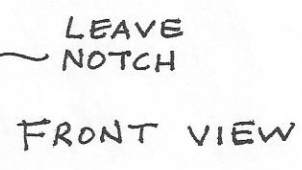 LEAVE
NOTCH
FRONT VIEW